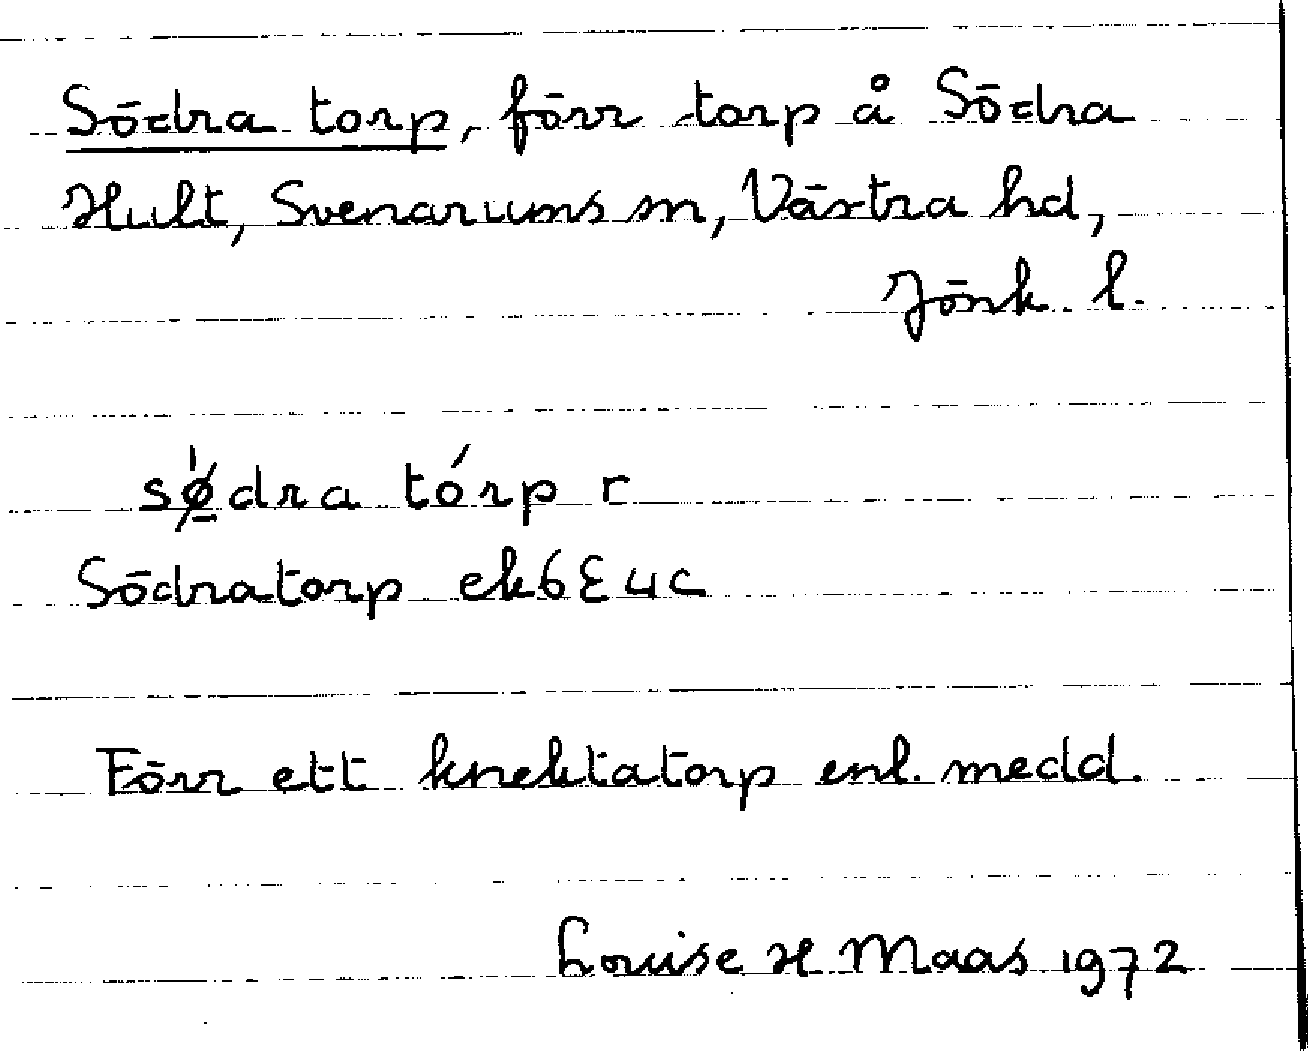 Södra torp, förr torp å Södra
Hult, Svenarums sn, Västra hd,
Jönk. l.
sǿ̱dra tórp r
Södratorp ek6E4c
Förr ett knektatorp enl. medd.
Louise H Maas 1972